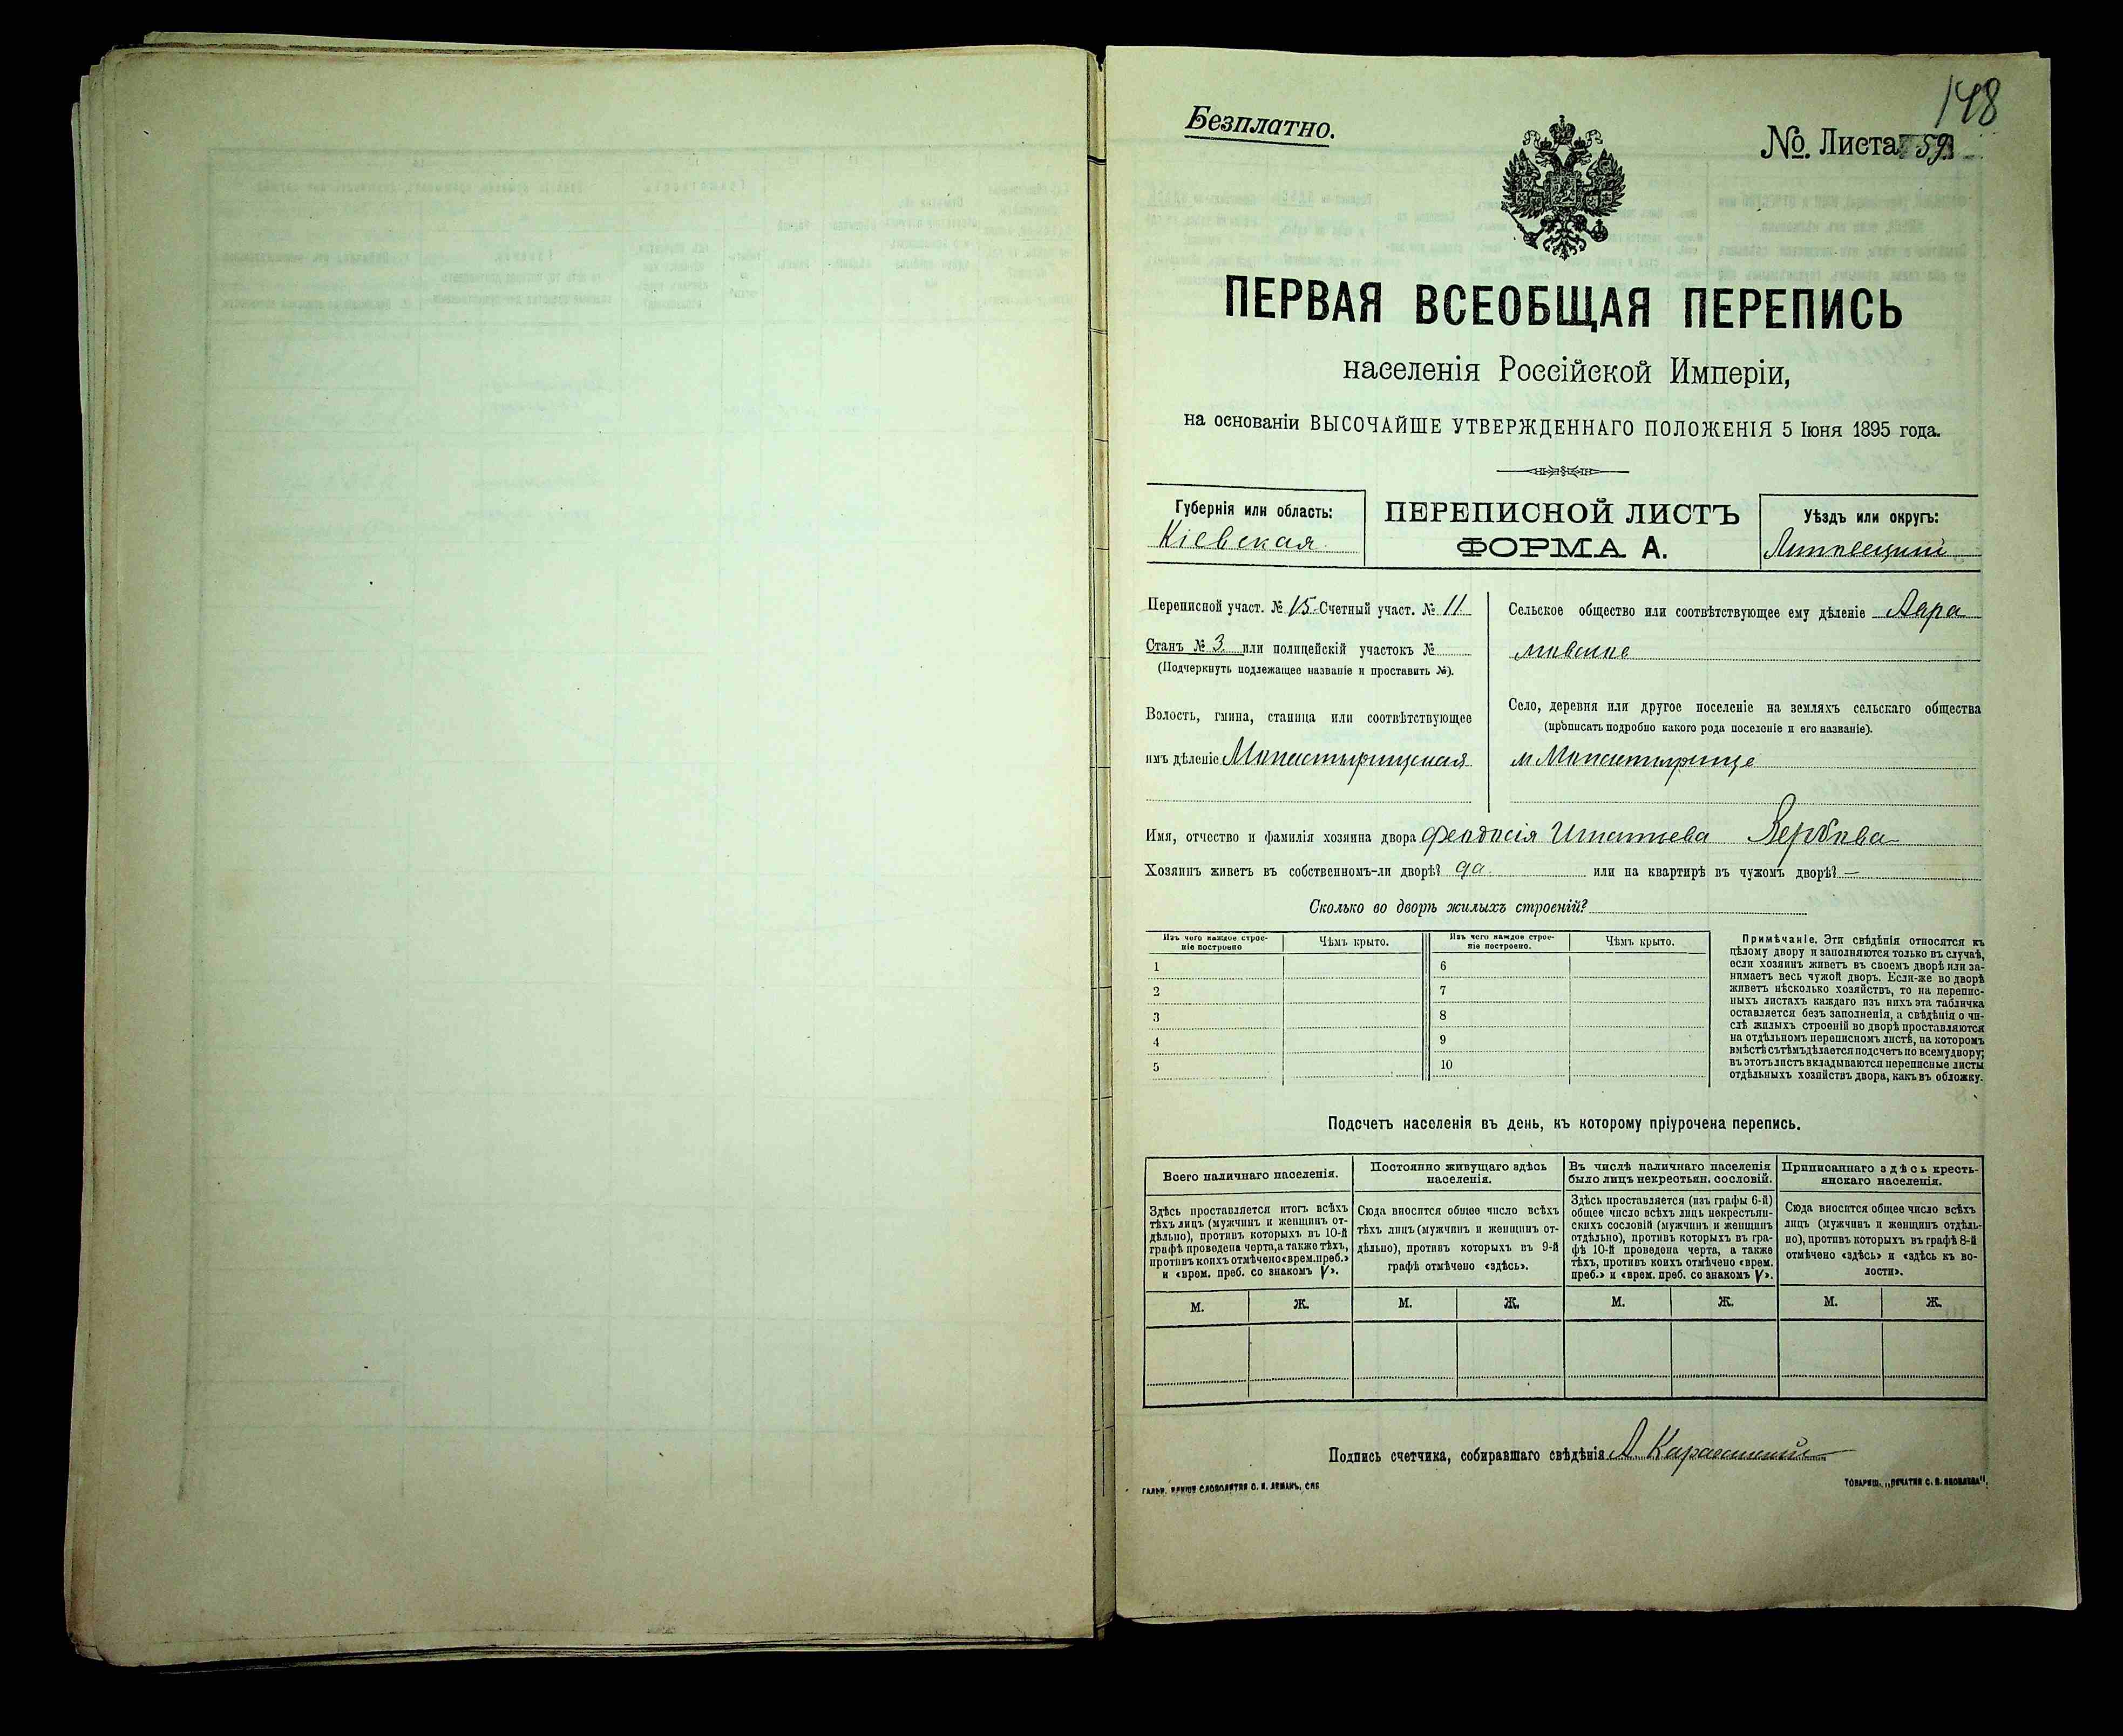 148
Безплатно.
№. Листа 59
ПЕРВАЯ ВСЕОБЩАЯ ПЕРЕПИСЬ
населенія Россійской Имперіи,
на основаніи ВЫСОЧАЙШЕ УТВЕРЖДЕННАГО ПОЛОЖЕНІЯ 5 Іюня 1895 года.
Губернія или область:
Кіевская
ПЕРЕПИСНОЙ ЛИСТЪ
ФОРМА А.
Уѣздъ или округъ:
Липовецкій
Переписной участ. № 15 Счетный участ. № 11
Станъ № 3 или полицейскій участокъ №
(Подчеркнуть подлежащее названіе и проставить №).
Волость, гмина, станица или соотвѣтствующее
имъ дѣленіе Монастырищская
Сельское общество или соотвѣтствующее ему дѣленіе
Село, деревня или другое поселеніе на земляхъ сельскаго общества
(прописать подробно какого рода поселеніе и его названіе).
м Монастырище
Имя, отчество и фамилія хозяина двора Феодосія Игнатьева Вербова
Хозяинъ живетъ въ собственномъ-ли дворѣ? да или на квартирѣ въ чужомъ дворѣ? —
Сколько во дворѣ жилыхъ строеній?
Изъ чего каждое строе-
ніе построено
Чѣмъ крыто.
Изъ чего каждое строе-
ніе построено.
Чѣмъ крыто.
1
2
3
4
5
6
7
8
9
10
Примѣчаніе. Эти свѣдѣнія относятся къ
цѣлому двору и заполняются только въ случаѣ,
если хозяинъ живетъ въ своемъ дворѣ или за-
нимаетъ весь чужой дворъ. Если-же во дворѣ
живетъ нѣсколько хозяйствъ, то на перепис-
ныхъ листахъ каждаго изъ нихъ эта табличка
оставляется безъ заполненія, а свѣдѣнія о чи-
слѣ жилыхъ строеній во дворѣ проставляются
на отдѣльномъ переписномъ листѣ, на которомъ
вмѣстѣ съ тѣмъ дѣлается подсчетъ по всему двору;
въ этотъ листъ вкладываются переписные листы
отдѣльныхъ хозяйствъ двора, какъ въ обложку.
Подсчетъ населенія въ день, къ которому пріурочена перепись.
Всего наличнаго населенія.
Здѣсь проставляется итогъ всѣхъ
тѣхъ лицъ (мужчинъ и женщинъ от-
дѣльно), противъ которыхъ въ 10-й
графѣ проведена черта, а также тѣхъ,
противъ коихъ отмѣчено «врем. преб.»
и «врем. преб. со знакомъ V».
Постоянно живущаго здѣсь
населенія.
Сюда вносится общее число всѣхъ
тѣхъ лицъ (мужчинъ и женщинъ от-
дѣльно), противъ которыхъ въ 9-й
графѣ отмѣчено «здѣсь».
Въ числѣ наличнаго населенія
было лицъ некрестьян. сословій.
Здѣсь проставляется (изъ графы 6-й)
общее число всѣхъ лицъ некрестьян-
скихъ сословій (мужчинъ и женщинъ
отдѣльно), противъ которыхъ въ гра-
фѣ 10-й проведена черта, а также
тѣхъ, противъ коихъ отмѣчено «врем.
преб.» и «врем. преб. со знакомъ V».
Приписаннаго здѣсь кресть-
янскаго населенія.
Сюда вносится общее число всѣхъ
лицъ (мужчинъ и женщинъ отдѣль-
но), противъ которыхъ въ графѣ 8-й
отмѣчено «здѣсь» и «здѣсь къ во-
лости».
М. Ж. М. Ж. М. Ж. М. Ж.
Подпись счетчика, собиравшаго свѣдѣнія А.
ТОВАРИЩ. „ПЕЧАТНЯ С. П. ЯКОВЛЕВА".